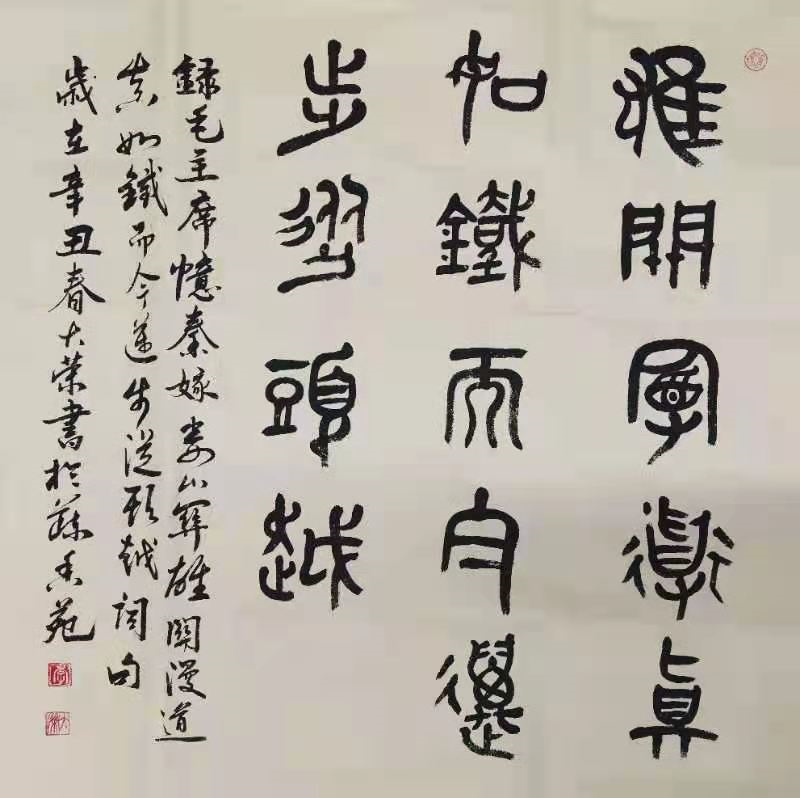 雄關漫道真
如鐵而今邁
步從頭越
録毛主席憶秦娥婁山關雄關漫道
真如鐵而今邁步從頭越詞句
歲在辛丑春大榮書於香苑